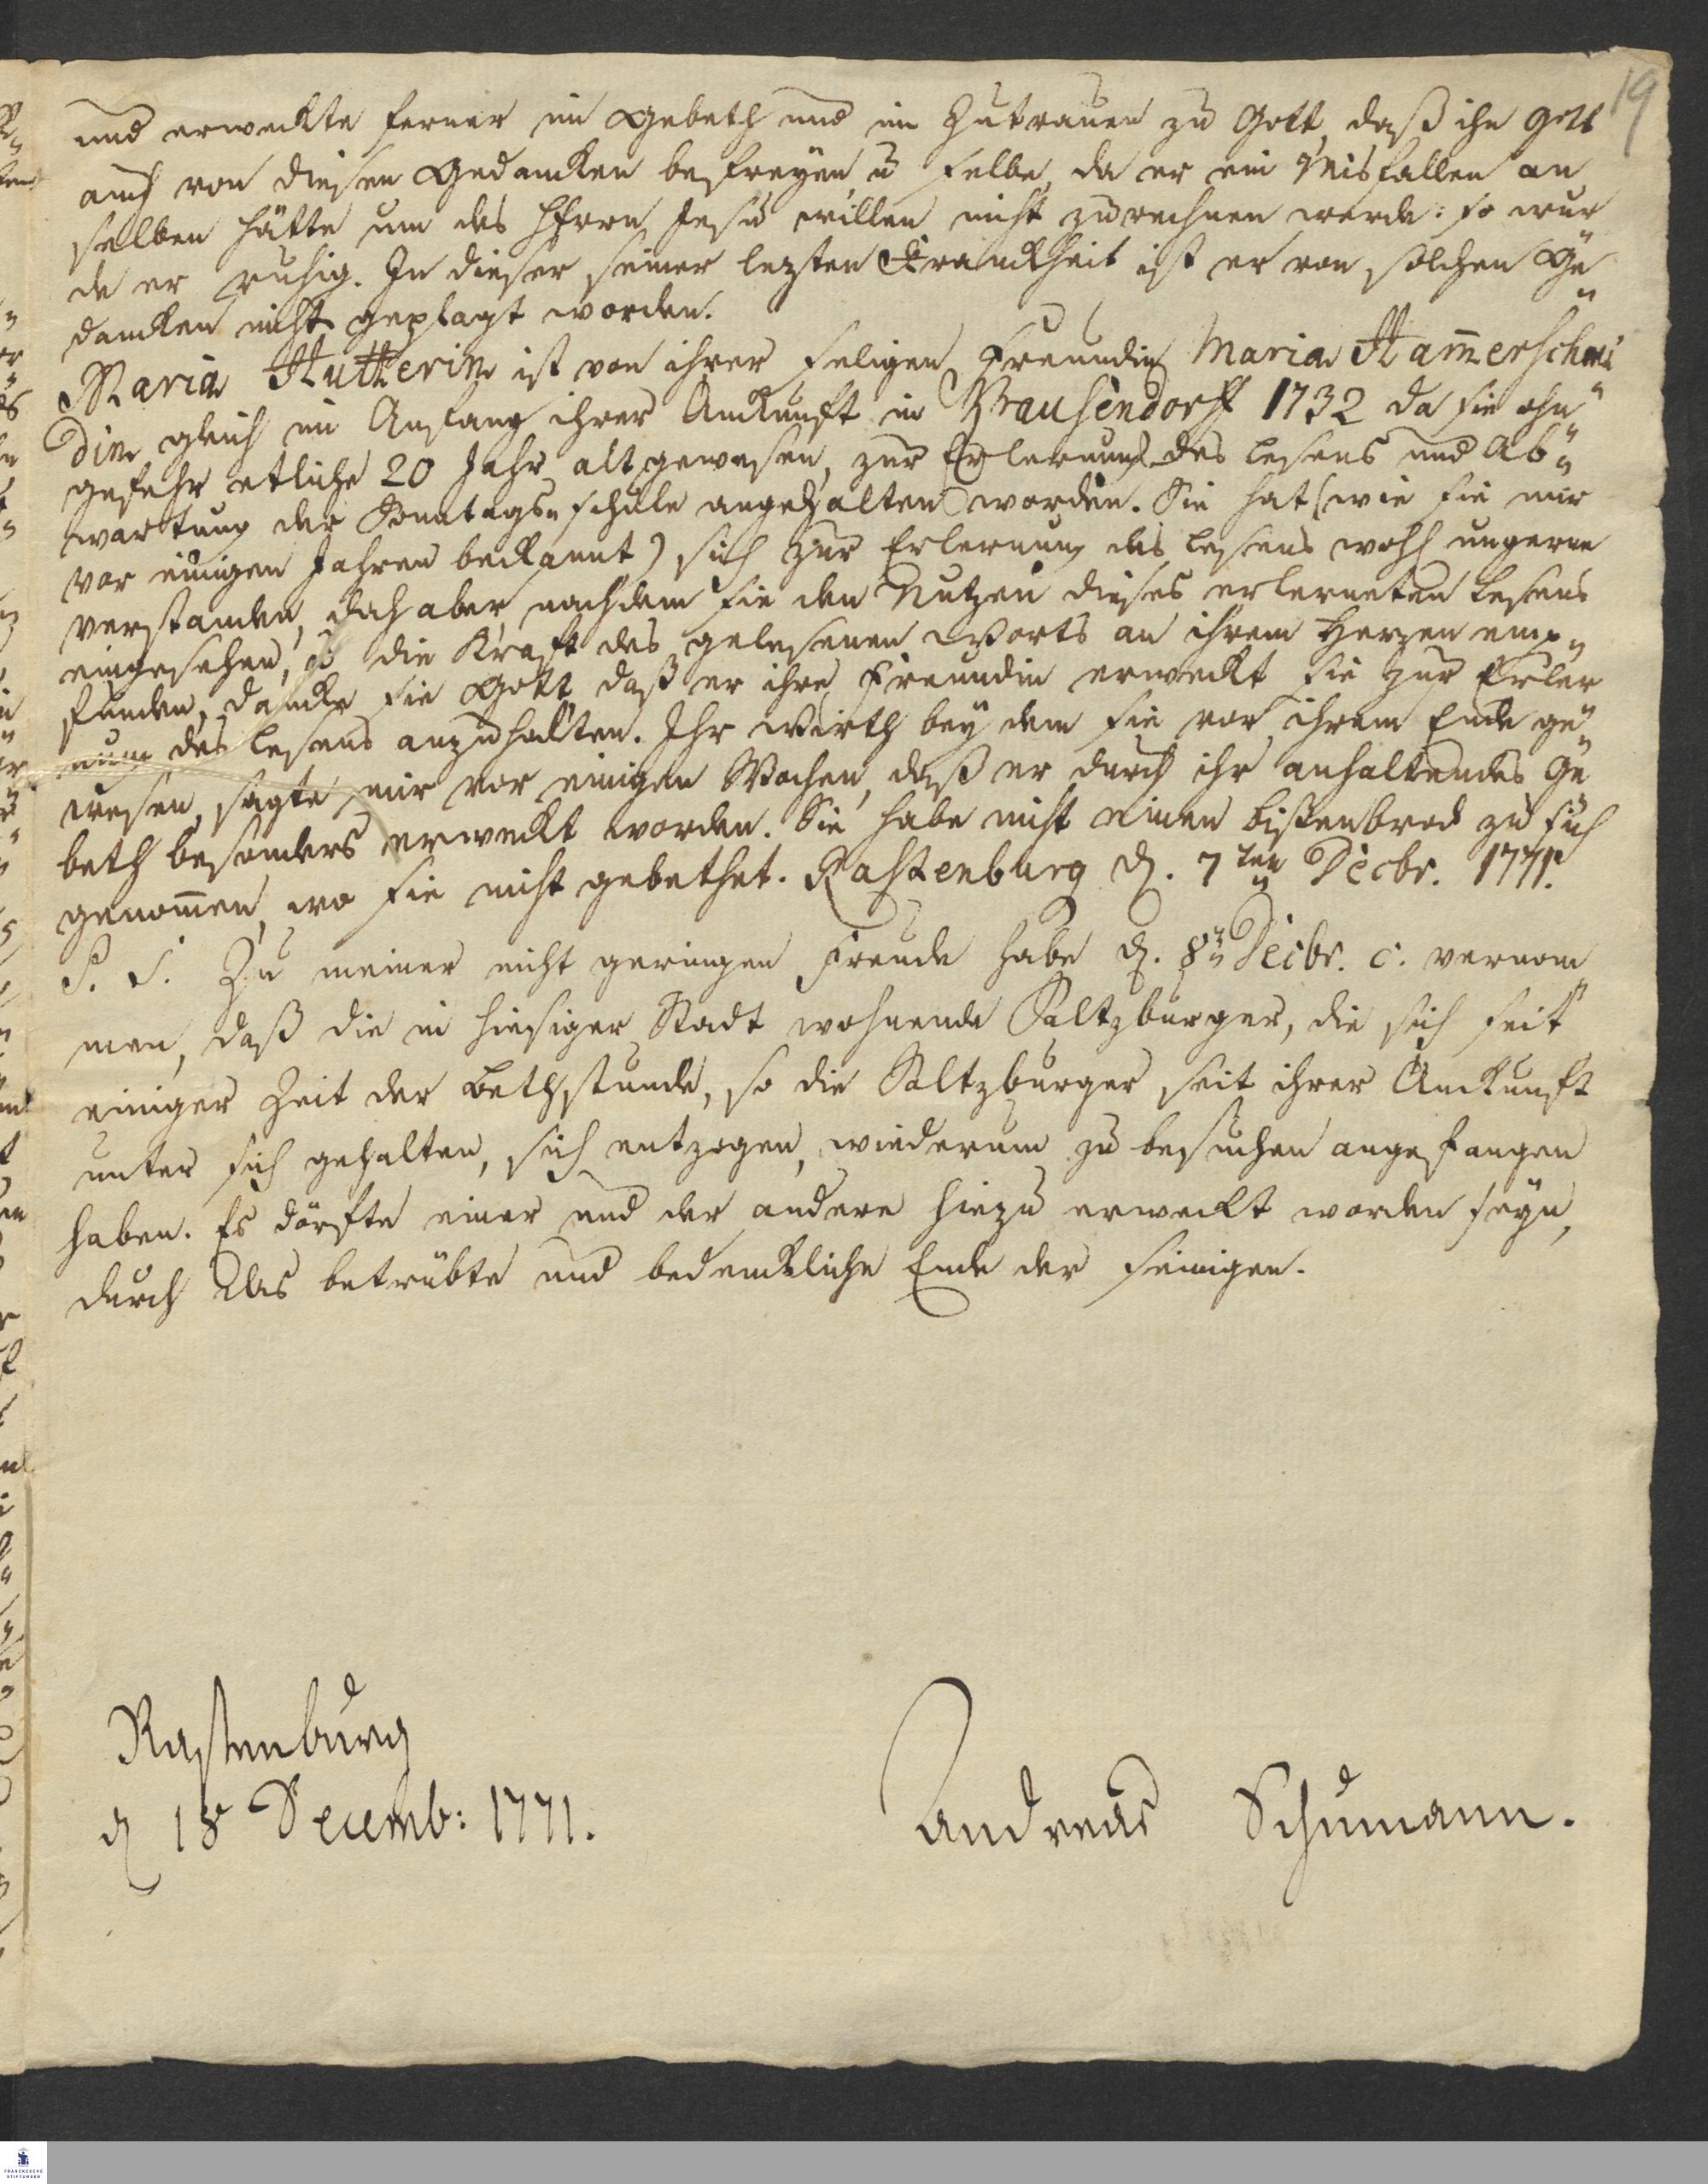 19
und erweckte ferner im Gebeth und im Zutrauen zu Gott, daß ihn Gott
auch von diesen Gedancken befreyen, u selbe, da er ein Misfallen an
selben hätte um des HErrn Jesu willen nicht zurechnen werde: so wur
de er ruhig. In dieser seiner lezten Kranckheit ist er von solchen Ge„
dancken nicht geplagt worden.
Maria Hutterin ist von ihrer seligen Freundin Maria Ham̄erschmi
din gleich im Anfang ihrer Ankunft in Brausendorff 1732 da sie ohn„
gefehr etliche 20 Jahr alt gewesen, zur Erlernung des Lesens und Ab„
wartung der Sonntags„schule angehalten worden. Sie hat (wie sie mir
vor einigen Jahren bekannt) sich zur Erlernung des Lesens wohl ungerne
verstanden, doch aber, nachdem sie den Nutzen dieses erlerneten Lesens
eingesehen, die Kraft des gelesenen Worts an ihrem Herzen emp„
funden, danckte sie Gott, daß er ihre Freundin erweckt sie zur Erler
nung des Lesens anzuhalten. Ihr Wirth bey dem sie vor ihrem Ende ge„
wesen, sagte mir vor einigen Wochen, daß er durch ihr anhaltendes Ge„
beth besonders erweckt worden. Sie habe nicht einen bißenbrod zu sich
genom̄en, wo sie nicht gebethet. Rastenburg d. 7ten Decbr. 1771.
P. S. Zu meiner nicht geringen Freude habe d. 8n Decbr. c. vernom
men, daß die in hiesiger Stadt wohnende Saltzburger, die sich seit
einiger Zeit der Bethstunde, so die Saltzburger seit ihrer Ankunft
unter sich gehalten, sich entzogen, wiederum zu besuchen angefangen
haben. Es dörfte einer und der andere hiezu erweckt worden seyn,
durch das betrübte und bedenckliche Ende der seinigen.
Rastenburg
d 18 Decemb: 1771.
Andreas Schumann.
FRANCKESCHE
STIFTUNGEN